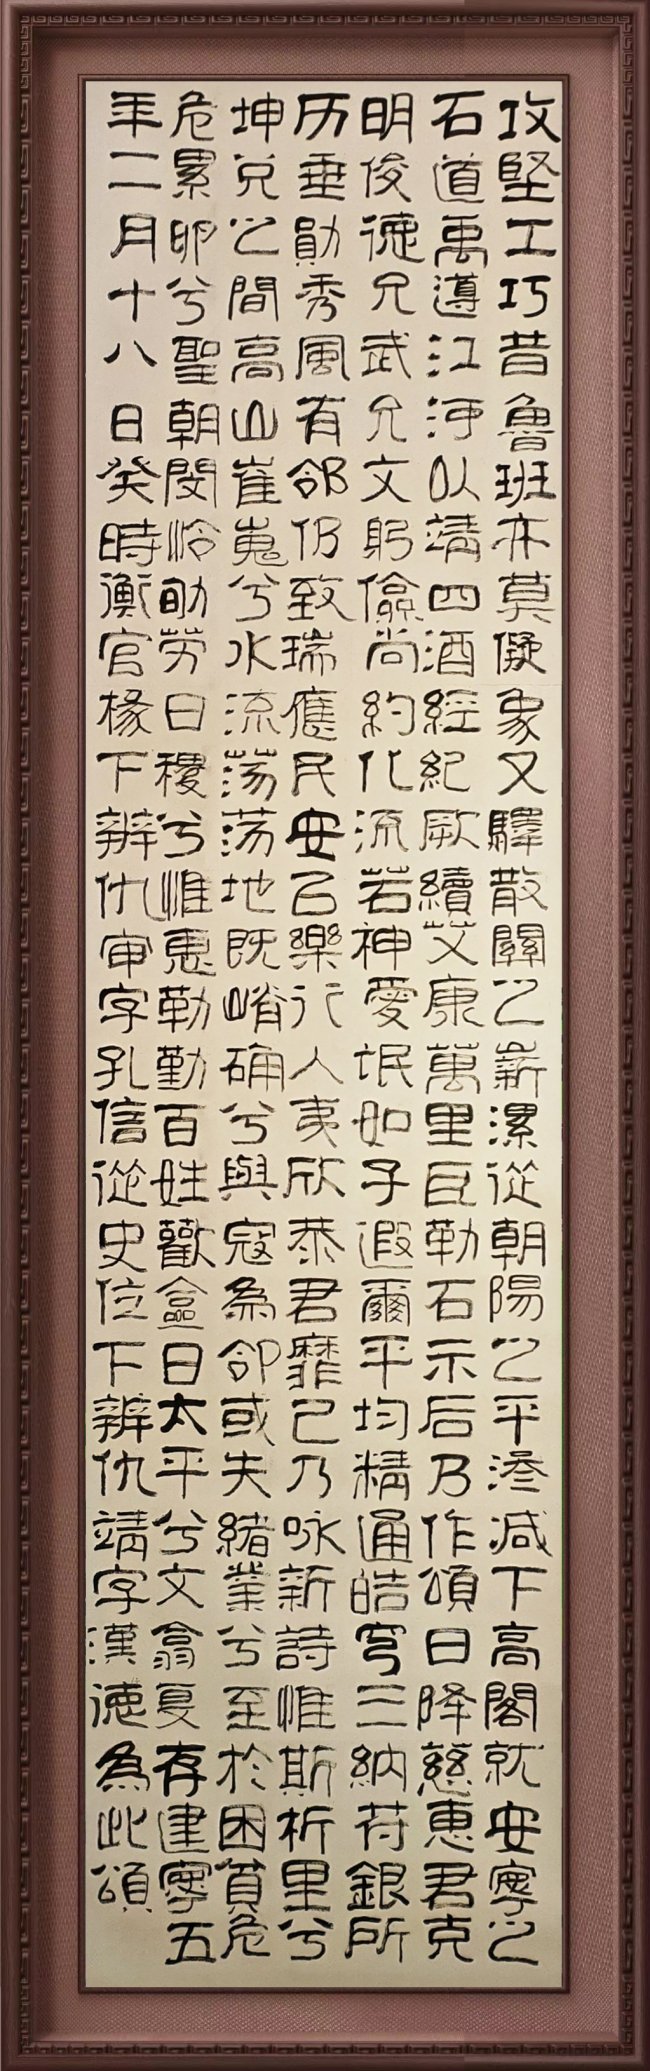 攻堅工巧昔魯班亦莫儗象又驛散關之嶄漯從朝陽之平滲减下高閣就安寧之
石道禹遵江河以靖四酒經紀厥續艾康萬里臣勒石示后乃作頌曰降慈惠君克
明俊德允武允文躬儉尚約化流若神愛氓如子遐爾平均精通皓穹三納苻銀所
历垂勛秀風有郃仍致瑞應民安已樂行人夷欣恭君靡已乃咏新詩惟斯析里兮
坤兑之間高山崔嵬兮水流蕩荡地既峭确兮與寇為郃或失緒業兮至於困貧危
危累卵兮聖朝閔怜劬劳日稷兮惟惠勒勤百姓歡僉曰太平兮文翁复存建寧五
年二月十八日癸時衡官椽下辨仇审字孔信從史位下辨仇靖字漢德為此頌